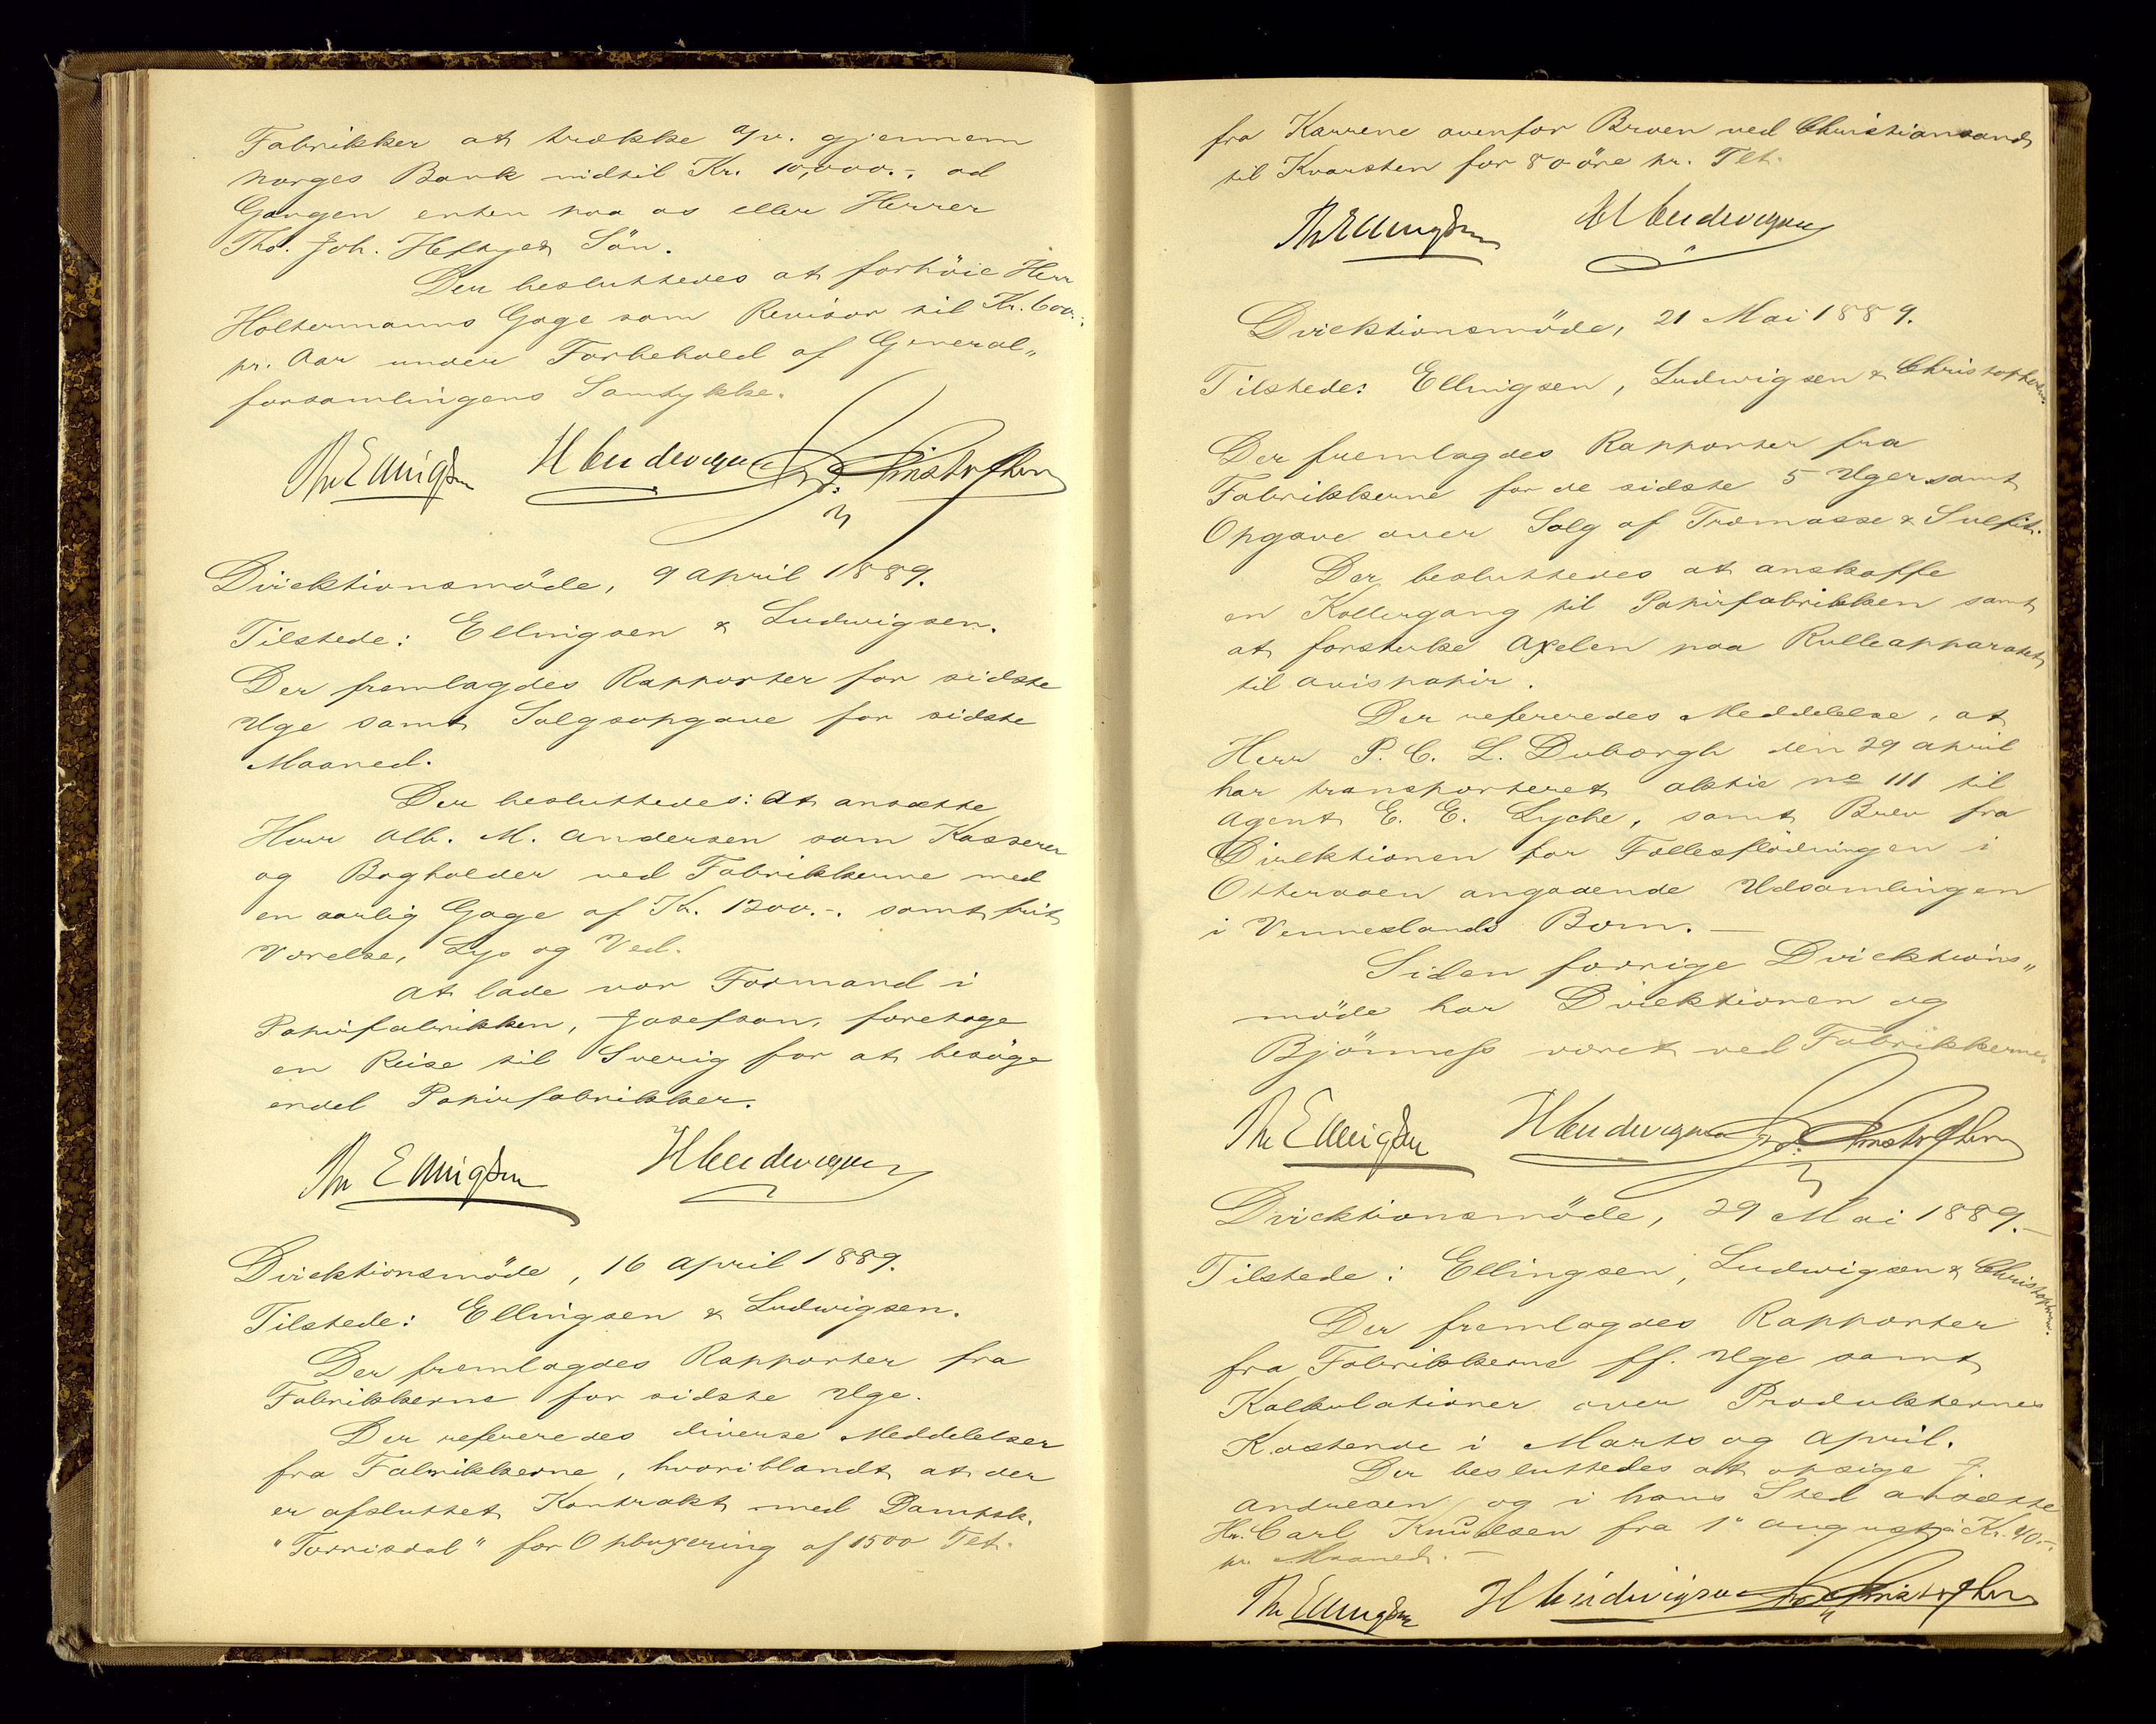 Fabrikker at trække a/v. gjennem
Norges Bank indtil Kr. 10,000.-. ad
Gangen enten paa os eller Herrer
Tho. Joh. Heftyes Sön.
Der besluttedes at forhöie Herr
Holtermanns Gage som Revisor til Kr. 600.-.
pr. Aar under Forbehold af General„
forsamlingens Samtykke.
Th Ellingsen H Ludwigsen Chr. Christophersen
Direktionsmöde, 9 April 1889.
Tilstede: Ellingsen & Ludwigsen.
Der fremlagdes Rapporter for sidste
Uge samt Salgsopgave for sidste
Maaned.
Der besluttedes: At ansætte
Herr Alb. M. Andersen som Kasserer
og Bogholder ved Fabrikkerne med
en aarlig Gage af Kr. 1200.-. samt frit
Værelse, Lys og Ved.
At lade vor Formand i
Papirfabrikken, Josefson, foretage
en Reise til Sverig for at besöge
endel Papirfabrikker.
Th Ellingsen H Ludwigsen
Direktionsmöde, 16 April 1889.
Tilstede: Ellingsen & Ludwigsen.
Der fremlagdes Rapporter fra
Fabrikkerne for sidste Uge.
Der refereredes diverse Meddelelser
fra Fabrikkerne, hvoriblandt at der
er afsluttet Kontrakt med Dampsk.
"Torrisdal" for Opbuxering af 1500 Tlt.
fra Karrene ovenfor Broen ved Christiansand
til Kvarsten for 80 öre pr. Tlt.
Th Ellingsen H Ludwigsen
Direktionsmöde, 21 Mai 1889.
Tilstede: Ellingsen, Ludwigsen & Christophersen.
Der fremlagdes Rapporter fra
Fabrikkerne for de sidste 5 Uger samt
Opgave over Salg af Træmasse & Sulfit.
Der besluttedes at anskaffe
en Kollergang til Papirfabrikken samt
at forstærke Axelen paa Rulleapparatet
til Avispapir.
Der refereredes Meddelelse, at
Herr P. C. L. Duborgh den 29 April
har transporteret Aktie No 111 til
Agent E. E. Lyche, samt Brev fra
Direktionen for Fællesflödningen i
Otteraaen angaaende Udsamlingen
i Venneslands Bom. —
Siden forrige Direktions„
möde har Direktionen og
Bjönness været ved Fabrikkerne.
Th Ellingsen H Ludwigsen Chr. Christophersen
Direktionsmöde, 29 Mai 1889. —
Tilstede: Ellingsen, Ludwigsen & Christophersen.
Der fremlagdes Rapporter
fra Fabrikkerne ff. Uge samt
Kalkulationer over Produkternes
Kostende i Marts og April.
Der besluttedes att opsige J.
Andresen og i hans Sted ansætte
Hr. Carl Knudsen fra 1" August à Kr. 40.-.
pr. Maaned. —
Th Ellingsen H Ludwigsen Chr Christophersen